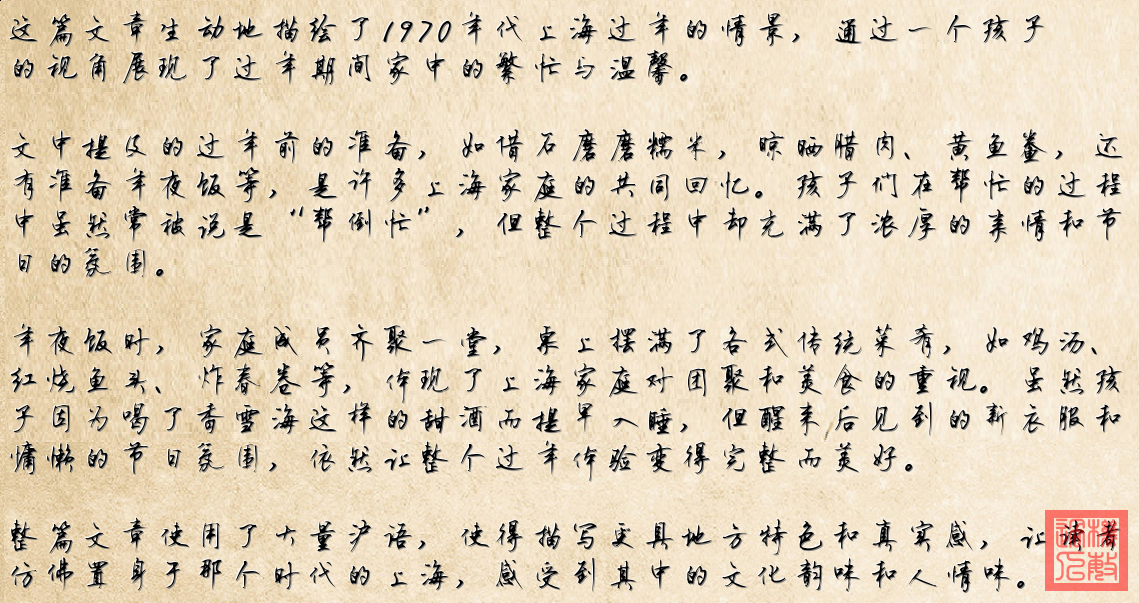 这篇文章生动地描绘了1970年代上海过年的情景，通过一个孩子
的视角展现了过年期间家中的繁忙与温馨。
文中提及的过年前的准备，如借石磨磨糯米，晾晒腊肉、黄鱼鲞，还
有准备年夜饭等，是许多上海家庭的共同回忆。孩子们在帮忙的过程
中虽然常被说是“帮倒忙”，但整个过程中却充满了浓厚的亲情和节
日的氛围。
年夜饭时，家庭成员齐聚一堂，桌上摆满了各式传统菜肴，如鸡汤、
红烧鱼头、炸春卷等，体现了上海家庭对团聚和美食的重视。虽然孩
子因为喝了香雪海这样的甜酒而提早入睡，但醒来后见到的新衣服和
慵懒的节日氛围，依然让整个过年体验变得完整而美好。
整篇文章使用了大量沪语，使得描写更具地方特色和真实感，让读者
仿佛置身于那个时代的上海，感受到其中的文化韵味和人情味。